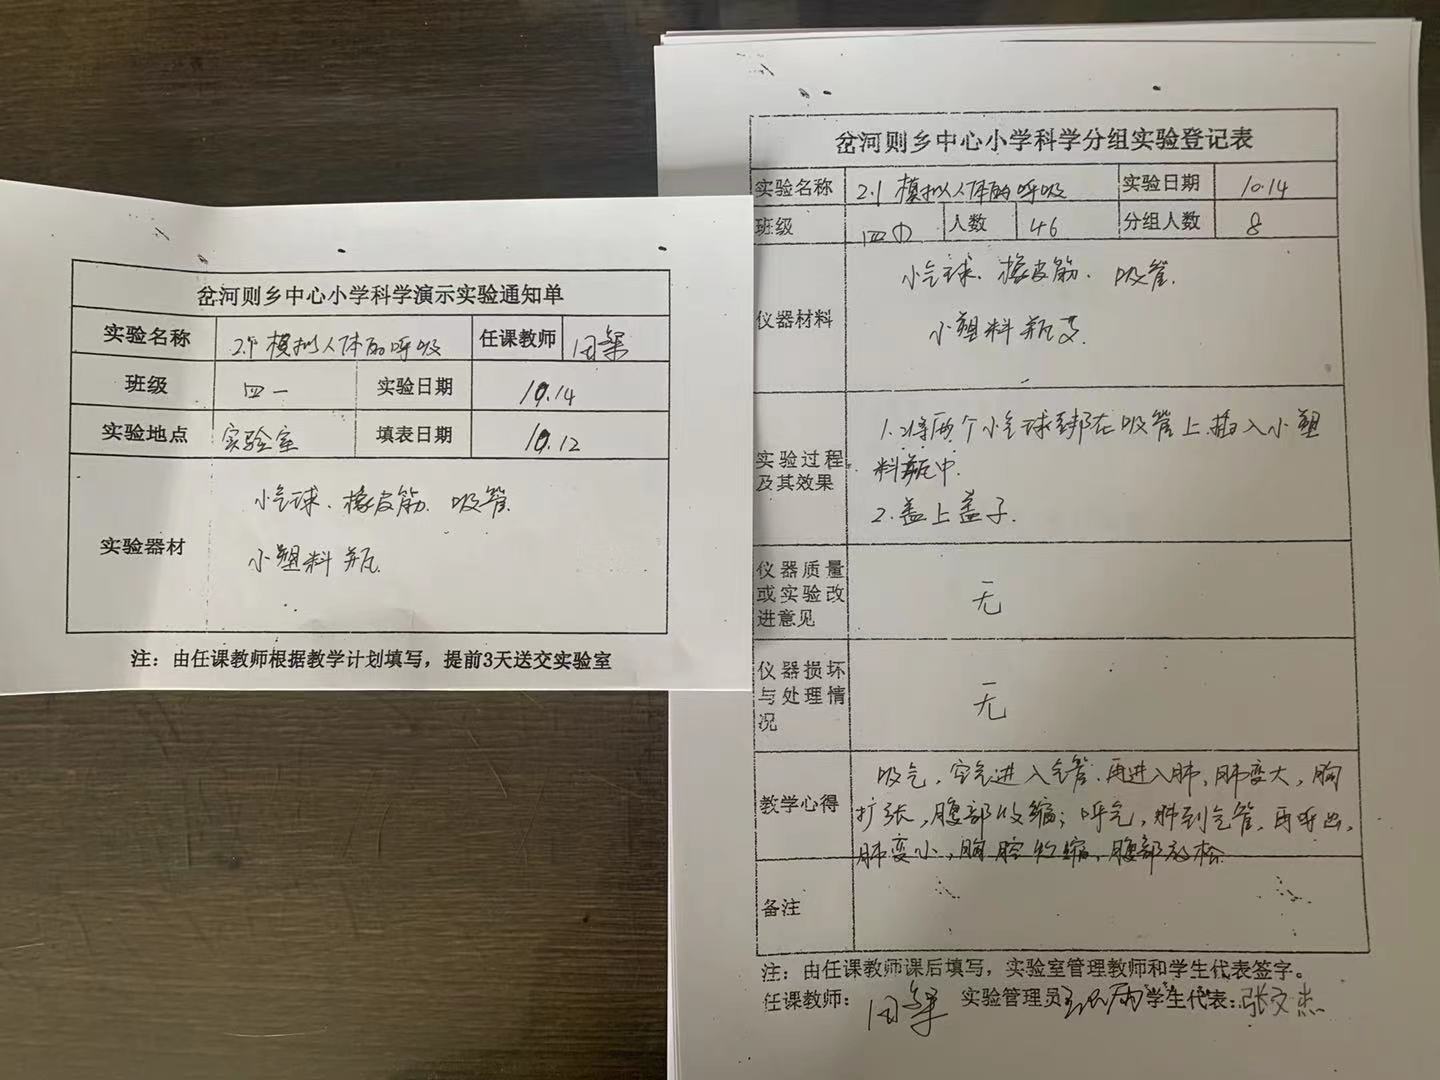 岔河则乡中心小学科学演示实验通知单
实验名称 2.1 模拟人体的呼吸 任课教师
班级 四一 实验日期 10.14
实验地点 实验室 填表日期 10.12
实验器材
小气球、橡皮筋、吸管、
小塑料瓶
注：由任课教师根据教学计划填写，提前3天送交实验室
岔河则乡中心小学科学分组实验登记表
实验名称 2.1 模拟人体的呼吸 实验日期 10.14
班级 人数 46 分组人数 8
仪器材料
小气球、橡皮筋、吸管、
小塑料瓶
实验过程及其效果
1.将两个小气球绑在吸管上，插入小塑
料瓶中.
2.盖上盖子.
仪器质量
或实验改
进意见
无
仪器损坏
与处理情
况
无
教学心得
吸气，空气进入气管，再进入肺，肺变大，胸
扩张，腹部收缩；呼气，肺到气管，再呼出，
肺变小，胸腔收缩，腹部放松
备注
注：由任课教师课后填写，实验室管理教师和学生代表签字。
任课教师： 实验管理员 学生代表：张文杰